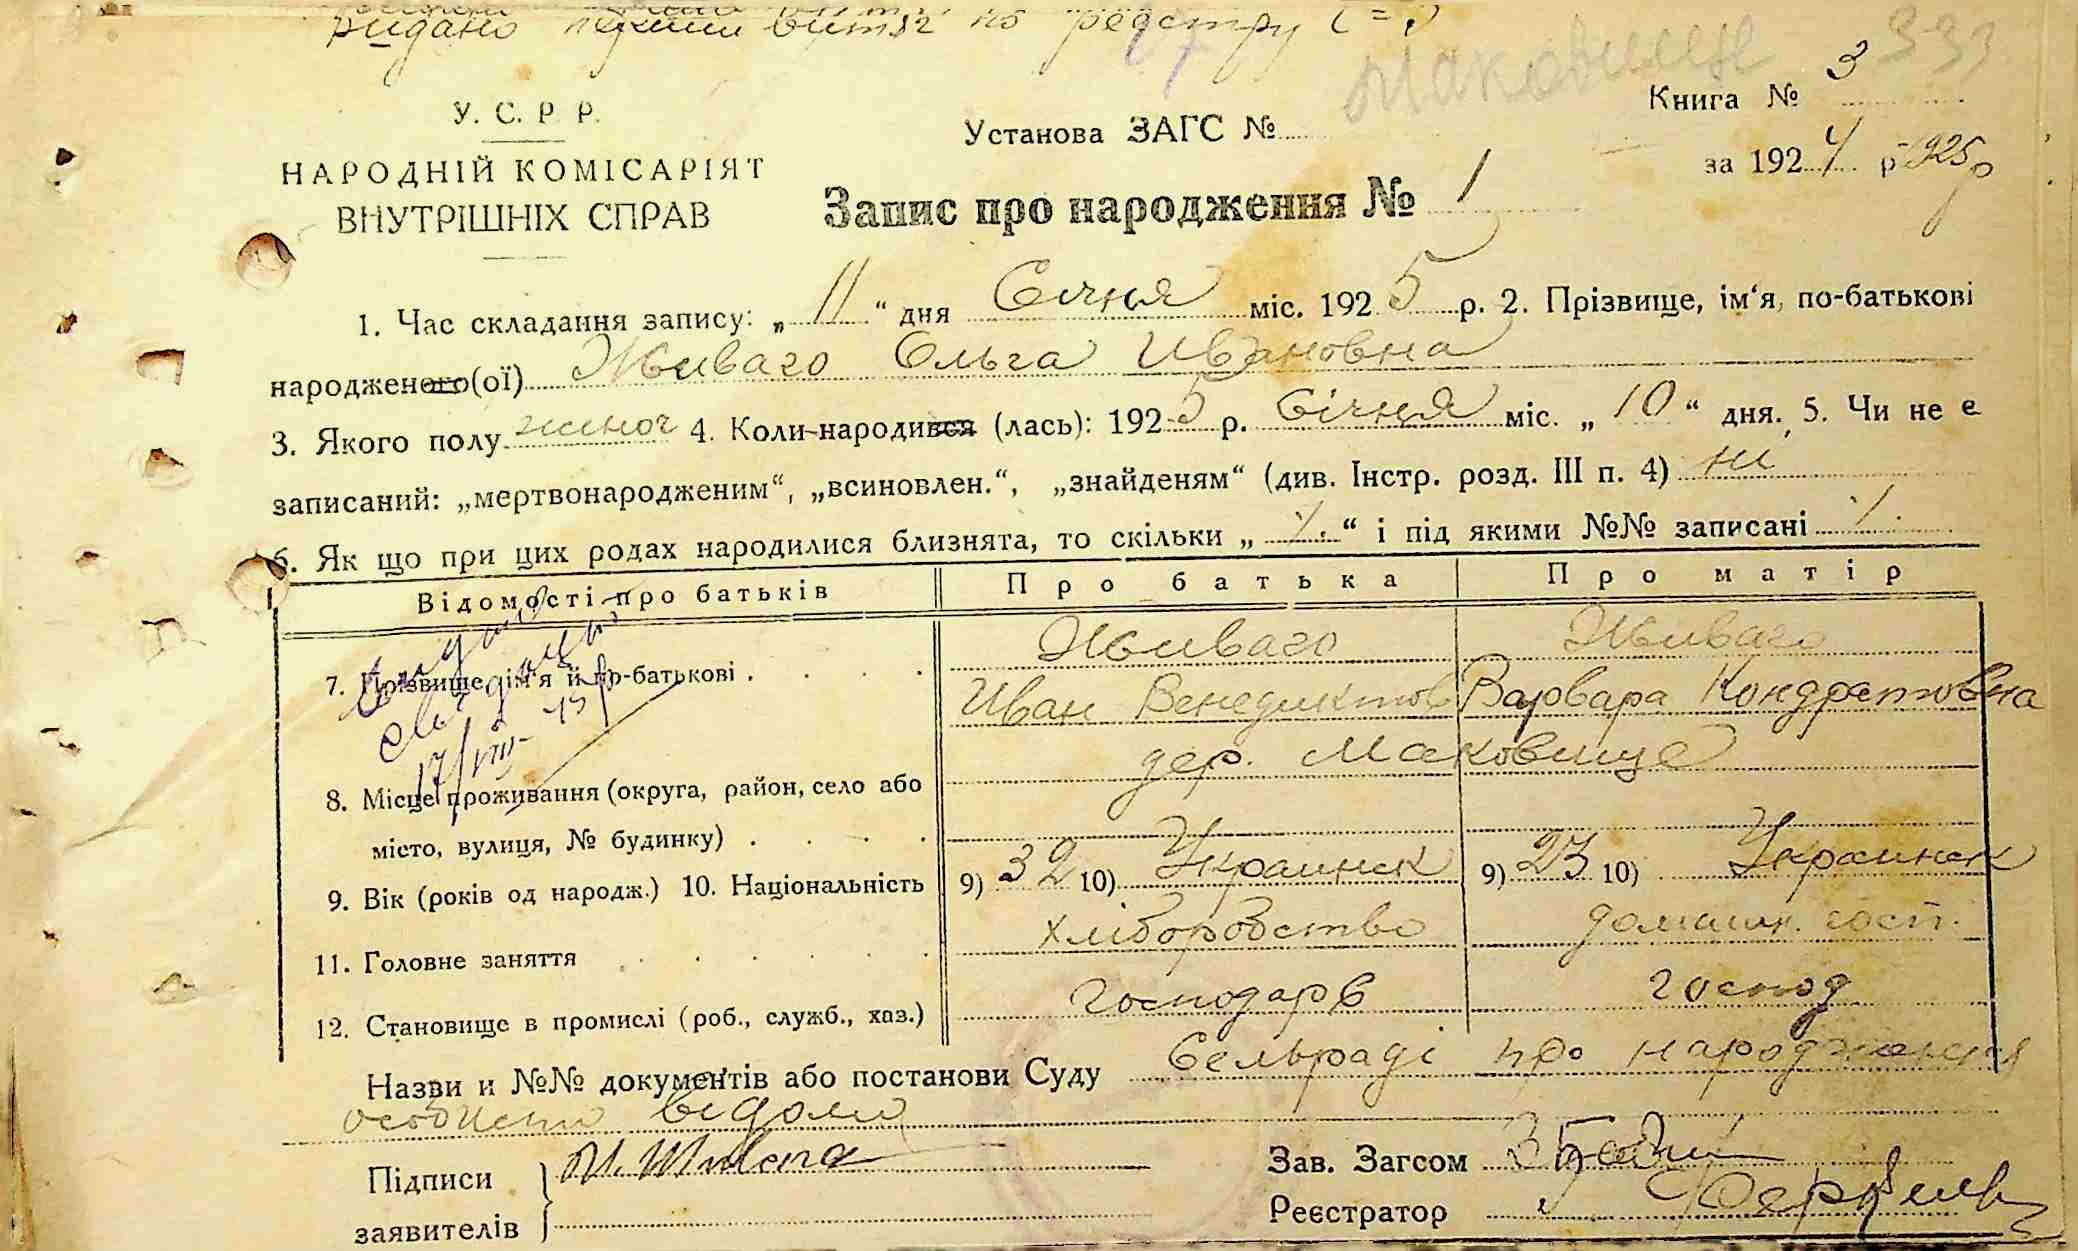 видано перший витяг по реєстру
Маковище 333
У. С. Р Р.
НАРОДНІЙ КОМІСАРІЯТ
ВНУТРІШНІХ СПРАВ
Установа ЗАГС №
Книга № 3
за 1924 р - 1925 р
Запис про народження № 1
1. Час складання запису: „ 11 “ дня Січня міс. 1925 р. 2. Прізвище, ім‘я, по-батькові
народженого(ої) Живаго Ольга Ивановна
3. Якого полу жіноч 4. Коли-народився (лась): 1925 р. Січня міс. „ 10 “ дня. 5. Чи не є
записаний: „мертвонародженим“, „всиновлен.“, „знайденям“ (див. Інстр. розд. III п. 4) ні
6. Як що при цих родах народилися близнята, то скільки „ “ і під якими №№ записані
Відомості про батьків Про батька Про матір
Живаго Живаго
7. Прізвище ім‘я й по-батькові . . . . Иван Венедиктов Варвара Кондратовна
17/VIII
дер. Маковище
8. Місце проживання (округа, район, село або
місто, вулиця, № будинку) . . . .
9. Вік (років од народж.) 10. Національність 9) 32 10) Украинск 9) 23 10) Украинск
11. Головне заняття . . . . . . хліборобство домашн. госп.
12. Становище в промислі (роб., служб., хаз.) господарь господ
Назви и №№ документів або постанови Суду Сельраді про народження
особисто відомо
Підписи
заявителів
Зав. Загсом
Реєстратор